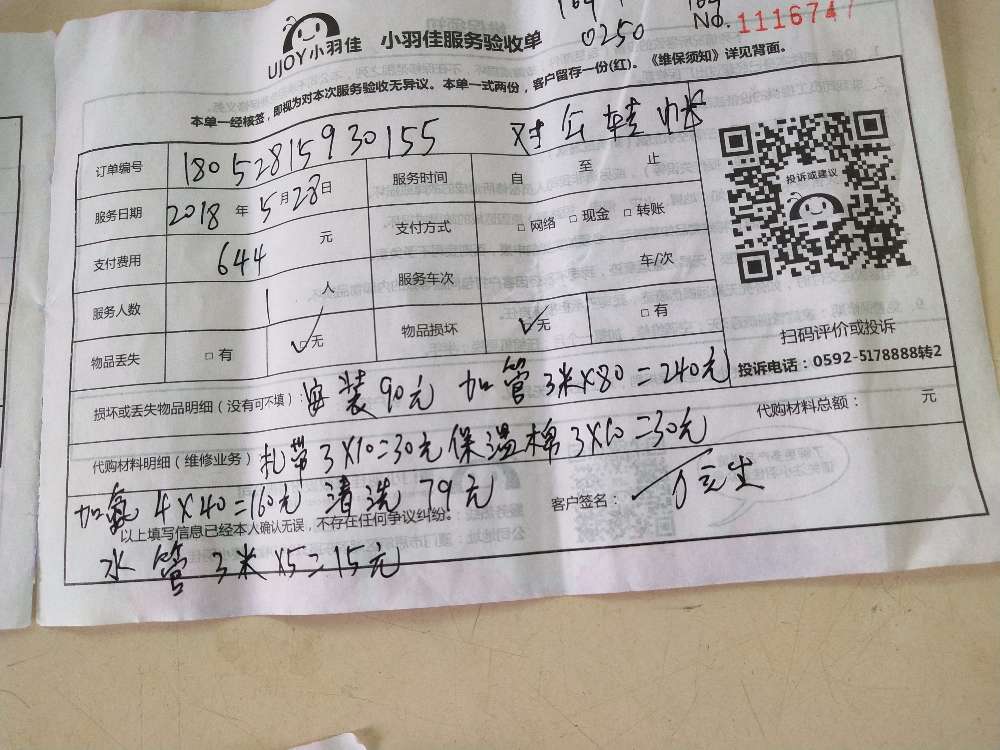 UJOY小羽佳 小羽佳服务验收单
0250 No. 1116747
本单一经核签,即视为对本次服务验收无异议。本单一式两份,客户留存一份(红)。《维保须知》详见背面。
对公转帐
订单编号 18052815930155 服务时间 自 至 止
服务日期 2018 年 5 月 28 日 支付方式 □ 网络 □ 现金 □ 转账
支付费用 644 元 服务车次 车/次
服务人数 1 人 物品损坏 ☑ 无 □ 有
物品丢失 □ 有 ☑ 无
投诉或建议
扫码评价或投诉
投诉电话:0592-5178888转2
损坏或丢失物品明细(没有可不填): 安装90元 加管3米×80=240元
代购材料明细(维修业务) 扎带3×10=30元 保温棉3×10=30元 代购材料总额: 元
加氟 4×40=160元 清洗 79元
以上填写信息已经本人确认无误,不存在任何争议纠纷。 客户签名:
水管 3米×5=15元